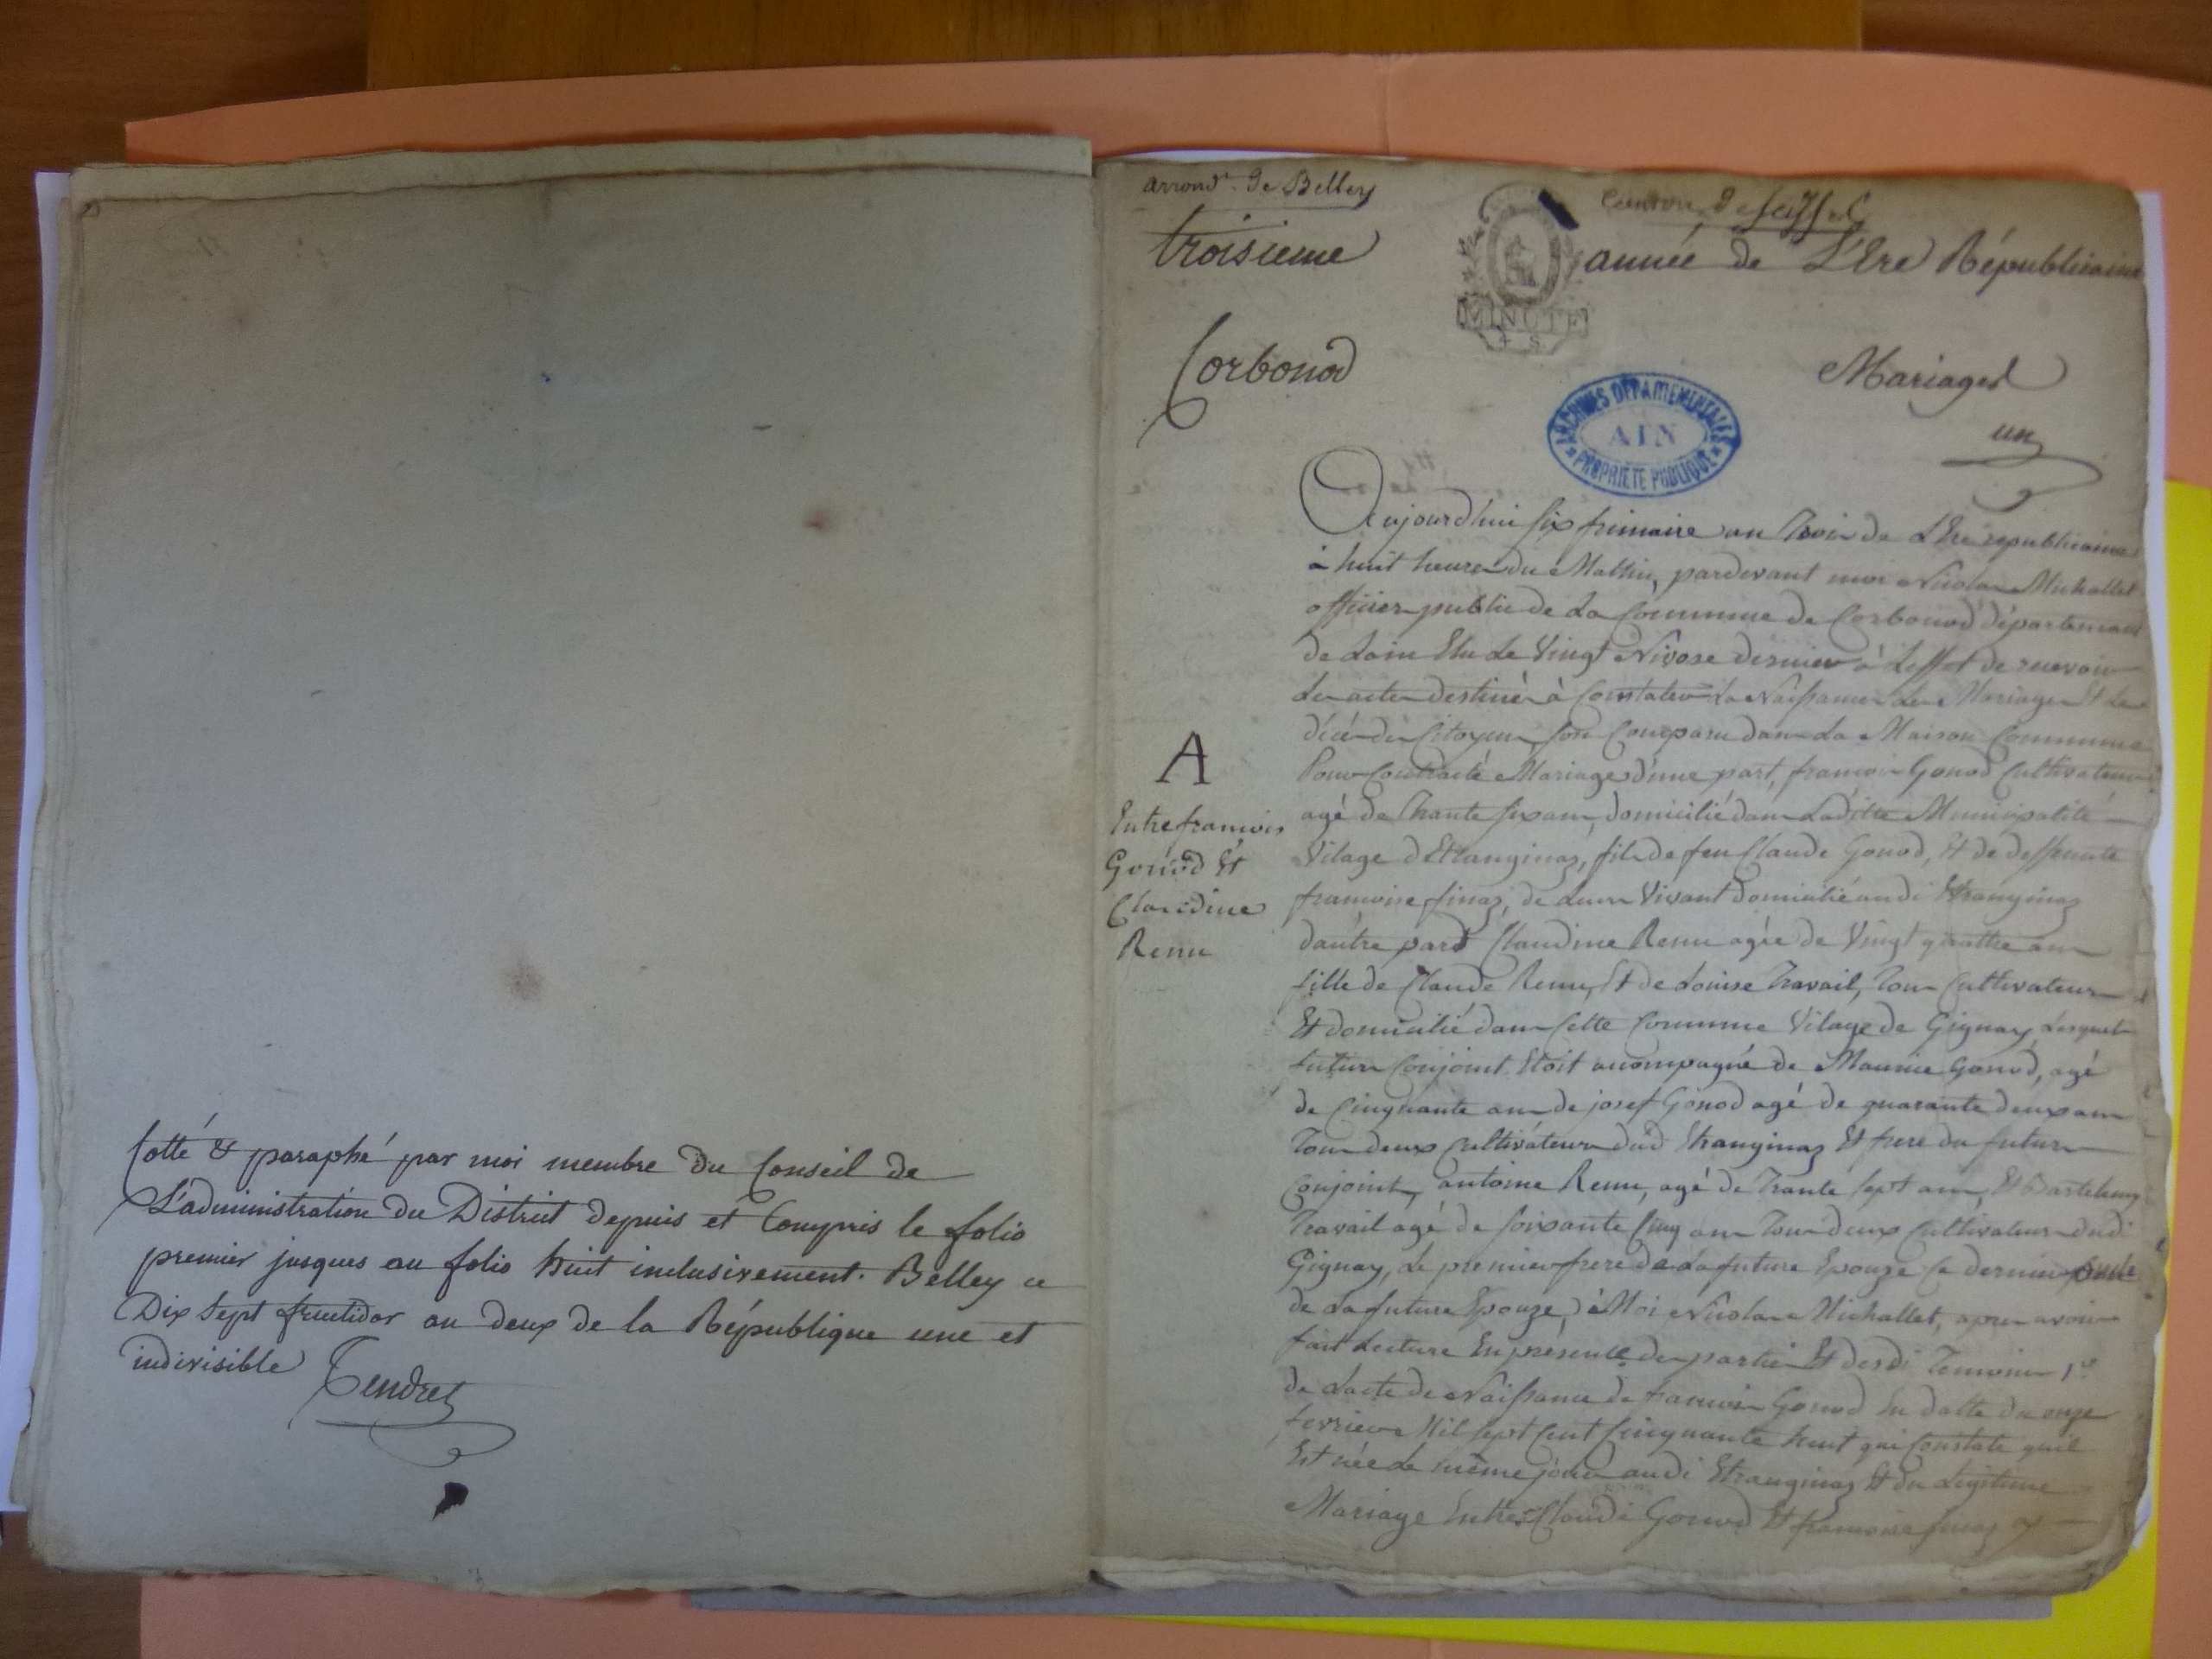 Cotté & paraphé par moi membre du Conseil de
L'administration du District depuis et Compris le folio
premier jusques au folio huit inclusivement. Belley ce
Dix sept fructidor an deux de la République une et
indivisible Tendret
arrond.t de Belley
Canton de Seyssel
troisieme année de L'Ere Républicaine
MINUTE
Corbonod Mariages
ARCHIVES DÉPARTEMENTALES
AIN
PROPRIÉTÉ PUBLIQUE
un
Aujourdhui six frimaire an Trois de L'Ere republicaine
à huit heures du Mattin, pardevant moi Nicolas Michallet
officier public de La Commune de Corbonod département
de Lain Elu Le Vingt Nivose dernier à Leffet de recevoir
Les actes destinés à Constater La Naissances Les Mariages Et Les
décés des Citoyens, sont Comparu dans La Maison Commune
Pour Contracté Mariage d'une part, francois Gonod Cultivateur
agé de Trante six ans, domicilié dans Laditte Municipalité
Vilage d'Etranginaz, fils de feu Claude Gonod, Et de deffunte
francoise finaz, de Leurs Vivant domicilié audi Etranginaz
d'autre pard Claudine Remu agée de Vingt quattre ans
fille de Claude Remu, Et de Louise Travail, Tous Cultivateurs
Et domicilié dans Cette Commune Vilage de Gignay, Lesquels
futurs Conjoint Etoit accompagné de Maurice Gonod, agé
de Cinquante ans de josef Gonod agé de quarante deux ans
Tous deux Cultivateurs dud Etranginaz Et frere du futur
Conjoint, antoine Remu, agé de Trante sept ans, Et Bartelemy
Travail agé de soixante Cinq ans Tous deux Cultivateurs dudi
Gignay, Le premier frere de La future Epouze Ce dernier oncle
de La future Epouze, à Moi Nicolas Michallet, apres avoir
fait Lecture En présence des parties Et desdi Temoins 1.o
de Lacte de Naissance de francois Gonod En datte du onze
fevrier Mil sept Cent Cinquante huit qui Constate qu'il
Est née Le même jour audi Etranginaz Et du Legitime
Mariage Entre Claude Gonod Et francoise finaz
A
Entre francois
Gonod Et
Claudine
Remu